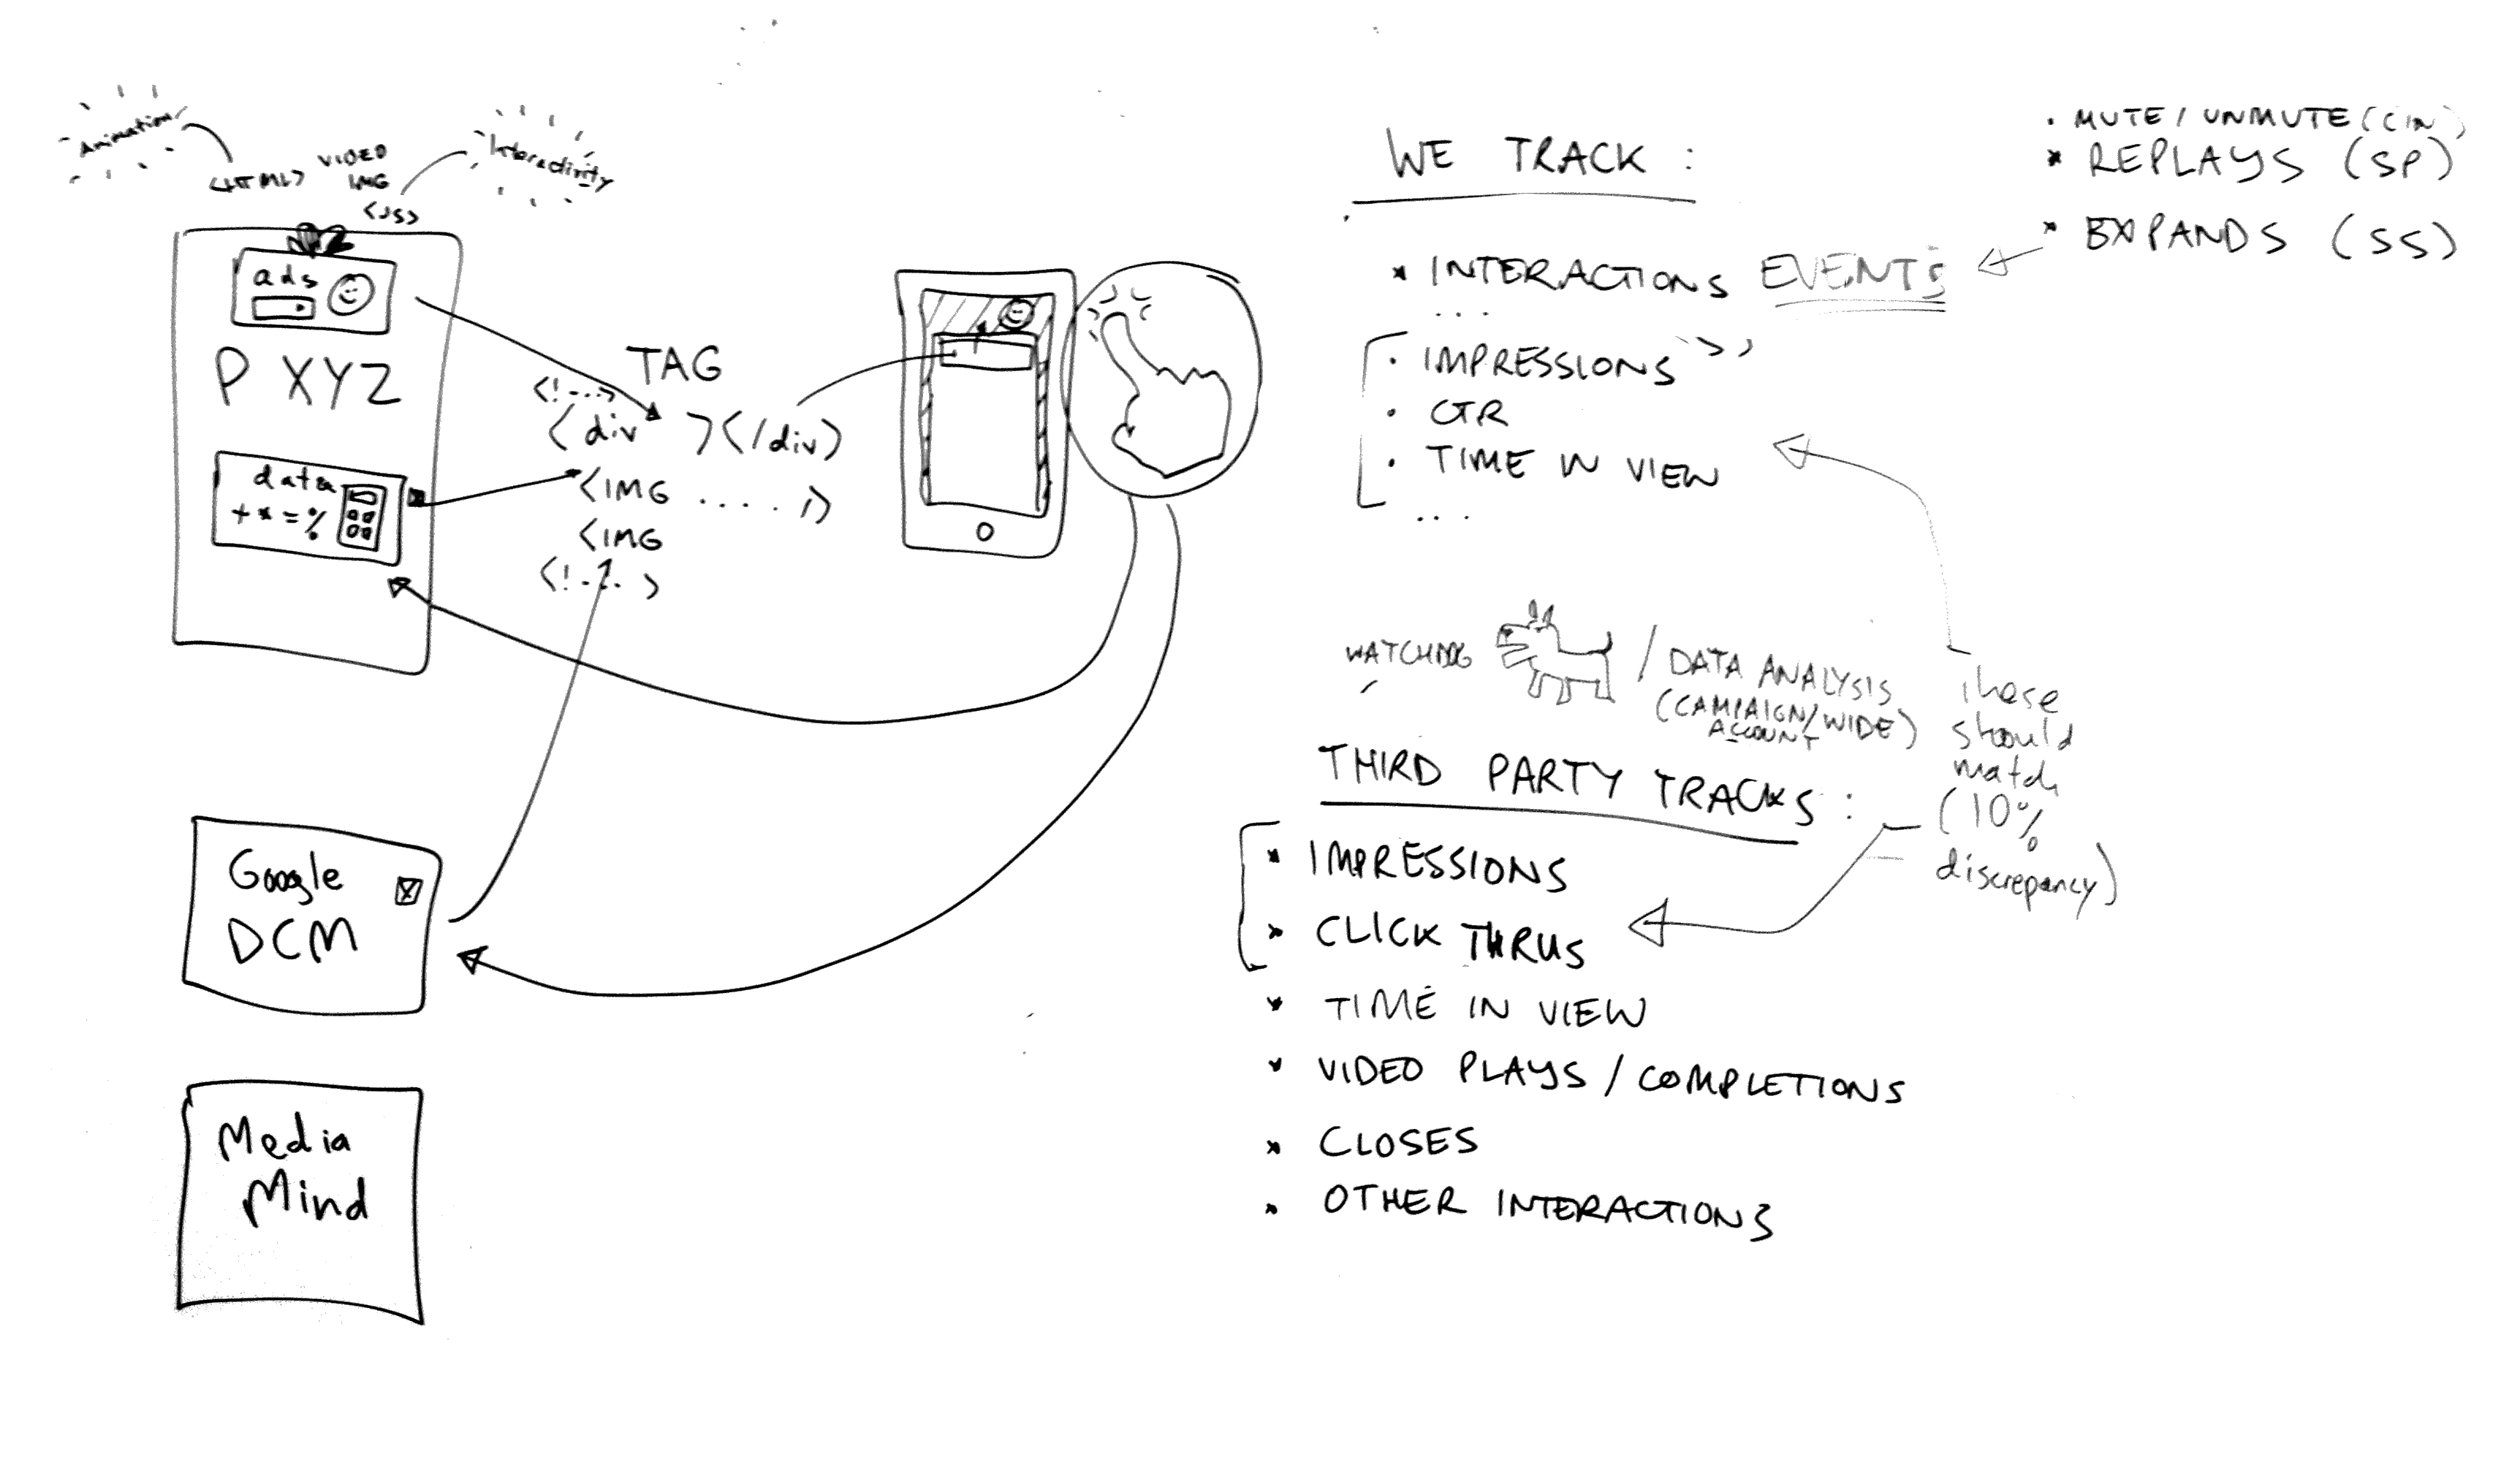 Animation
<HTML>
VIDEO
IMG
<JS>
Interactivity
ads
P XYZ
data
+ * = %
TAG
<!-...>
<div ></div>
<IMG ..... />
<IMG
<!-1. >
Google
DCM
Media
Mind
WE TRACK :
• INTERACTIONS EVENTS
...
• IMPRESSIONS
• CTR
• TIME IN VIEW
...
• MUTE / UNMUTE (CIN)
• REPLAYS (SP)
• EXPANDS (SS)
WATCHDOG / DATA ANALYSIS
(CAMPAIGN/WIDE)
ACCOUNT
these
should
match
(10%
discrepancy)
THIRD PARTY TRACKS :
• IMPRESSIONS
• CLICK THRUS
• TIME IN VIEW
• VIDEO PLAYS / COMPLETIONS
• CLOSES
• OTHER INTERACTIONS